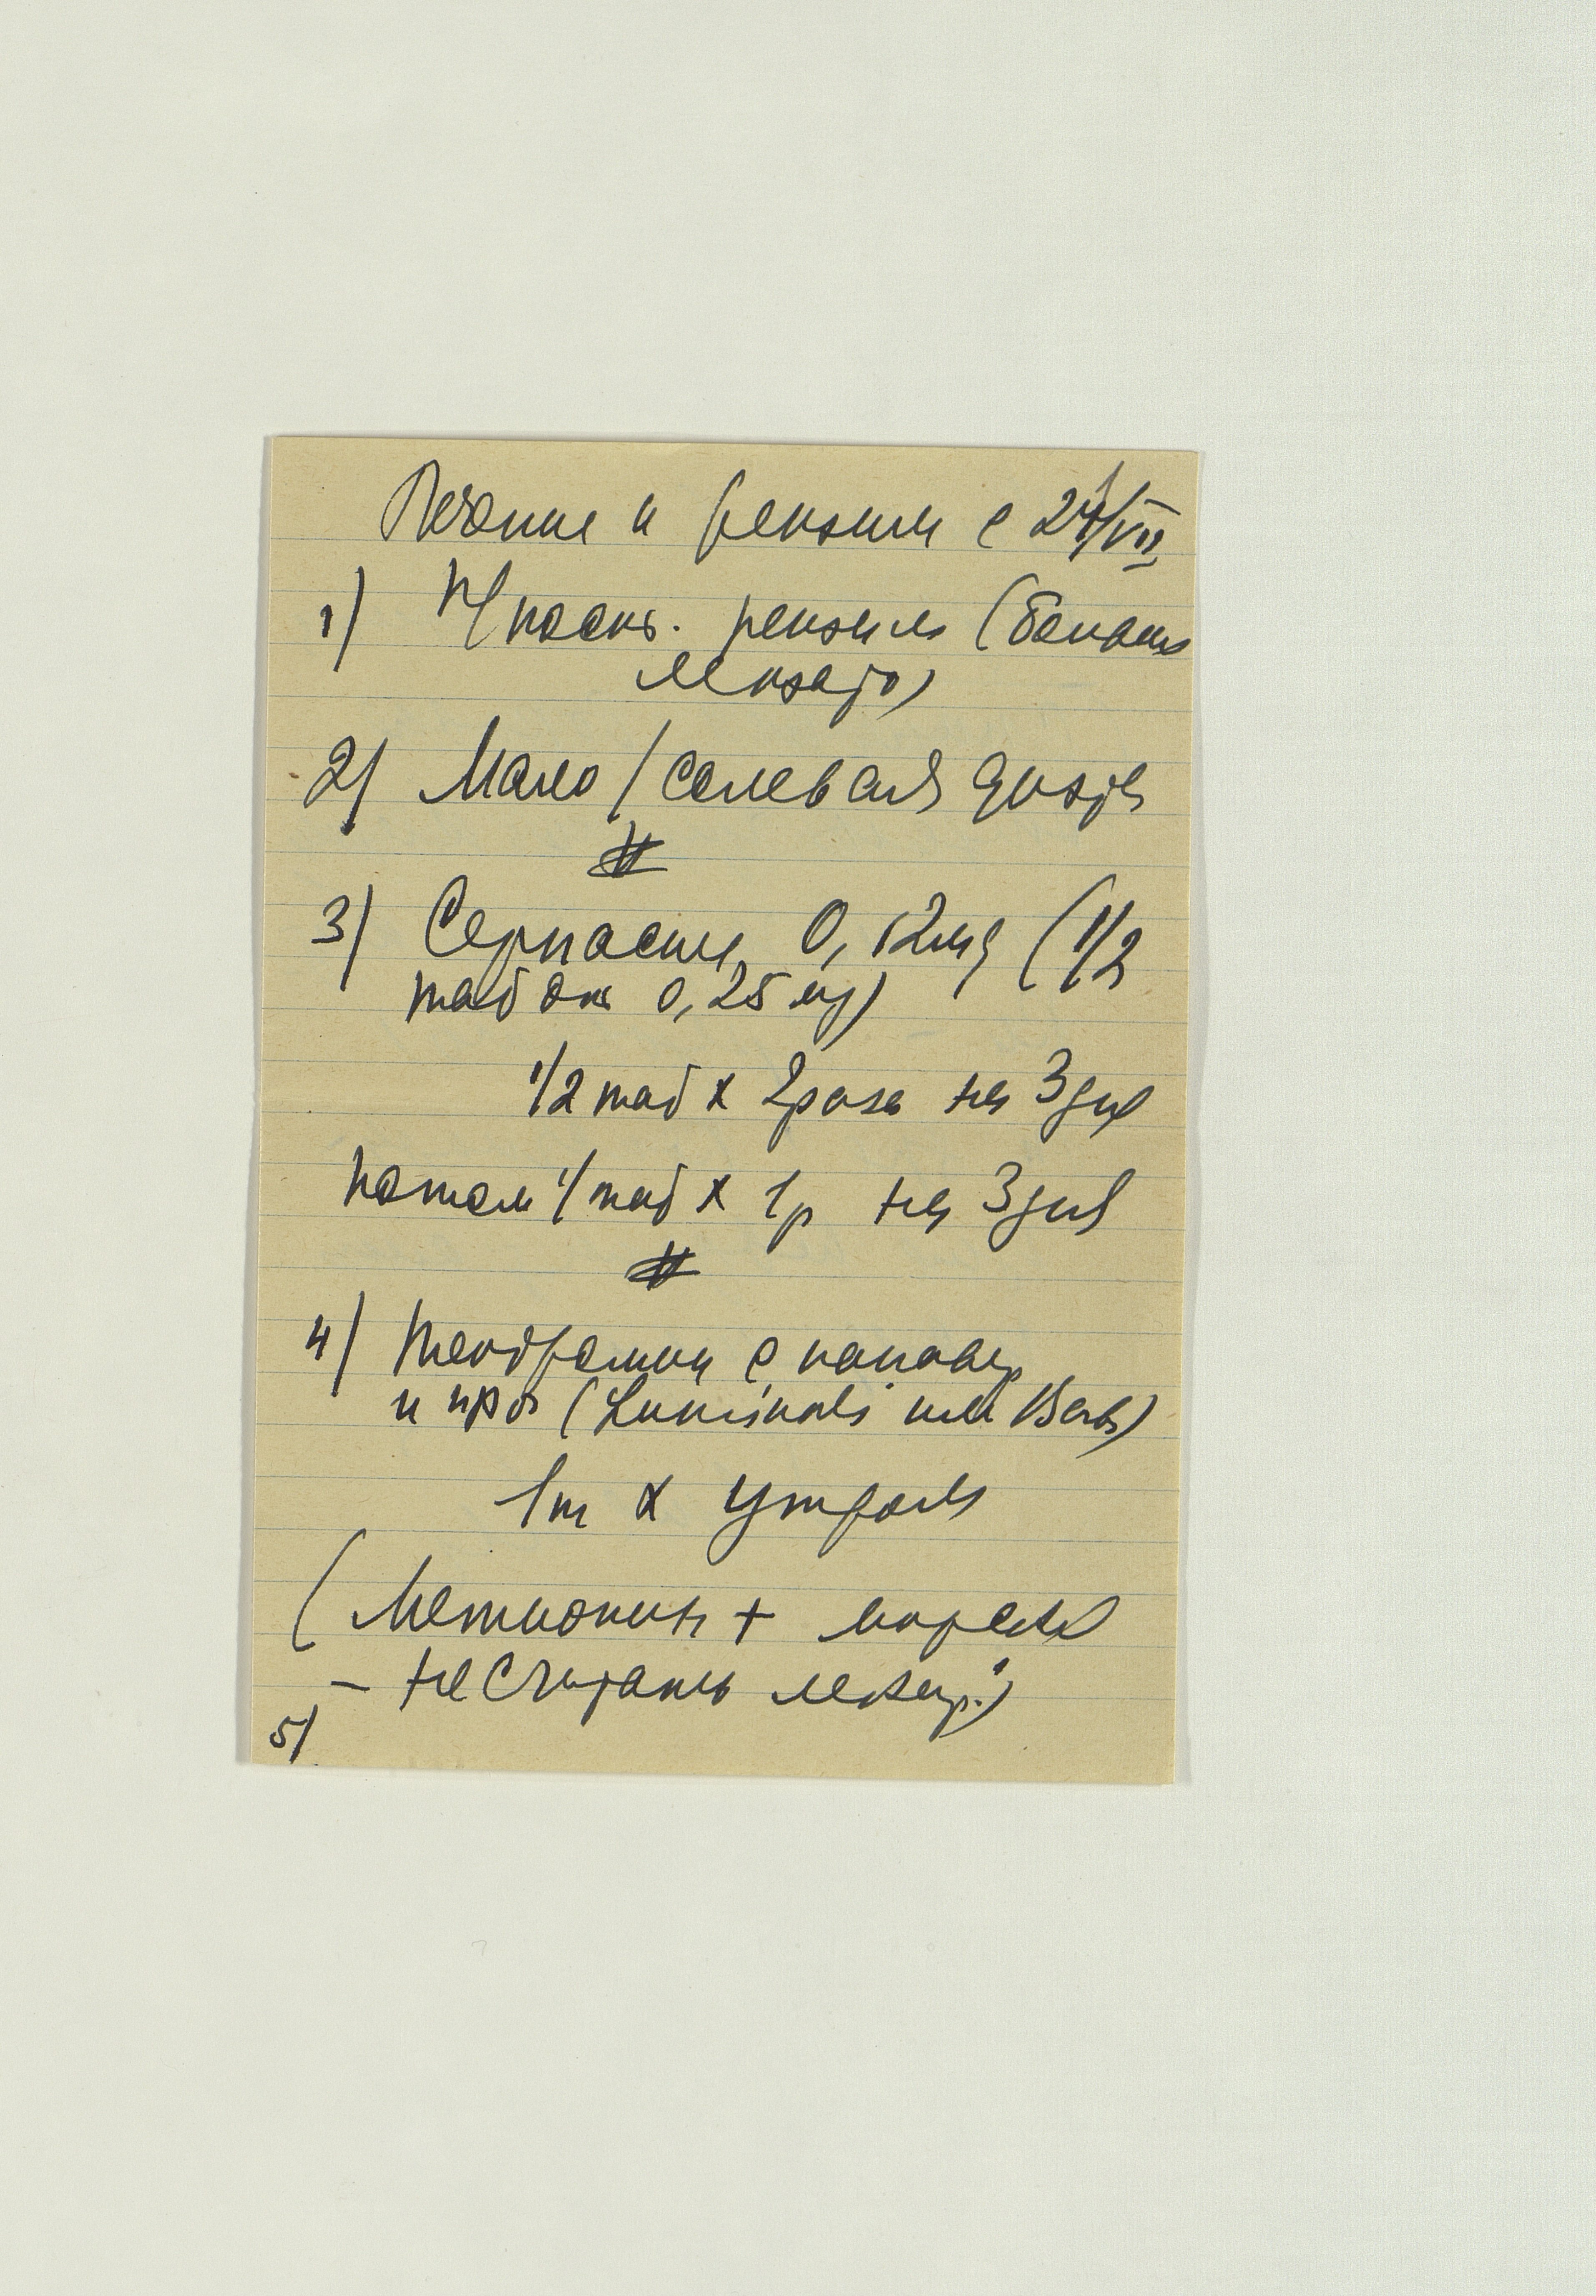 Лечение и режим с 24/VII
1) П/пост. режим (больше
лежать)
2) Мало/солевая диэта
3) Серпасил 0,12мg (1/2
таб от 0,25 мg)
1/2 таб х 2 раза на 3 дня
Потом 1/ таб х 1 р на 3 дня
4) Теодромин с папавер
и проч (Luminali или Barb)
1 т х утром
(Метионин +
— не считать лекар.!)
5)